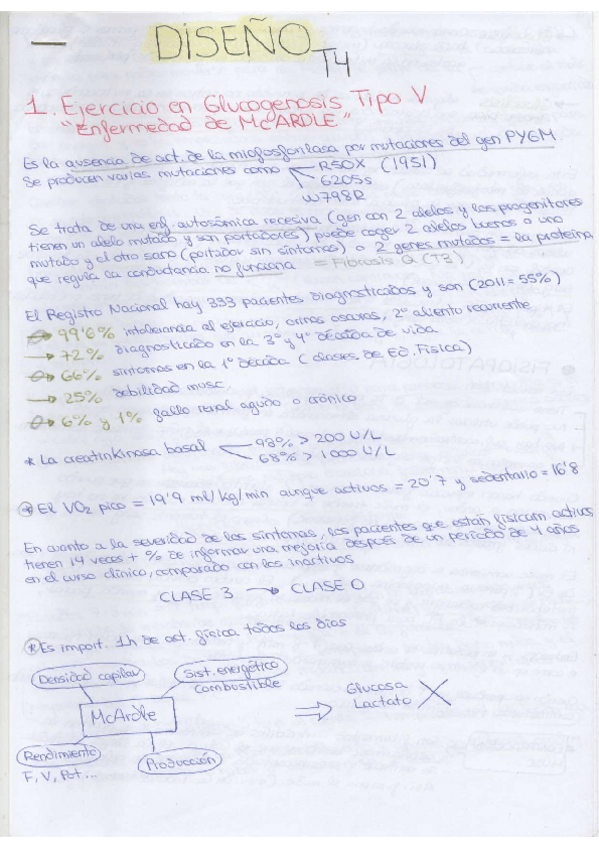 DISEÑO T4
1. Ejercicio en Glucogenosis Tipo V
"Enfermedad de McARDLE"
Es la ausencia de act. de la miofosforilasa por mutaciones del gen PYGM.
Se producen varias mutaciones como R50X (1951)
G205s
W798R
Se trata de una enf. autosómica recesiva (gen con 2 alelos y los progenitores
tienen un alelo mutado y son portadores) puede coger 2 alelos buenos o uno
mutado y el otro sano (portador sin síntomas) o 2 genes mutados = la proteína
que regula la conductancia no funciona = Fibrosis Q (T3)
El Registro Nacional hay 333 pacientes diagnosticados y son (2011 = 55%)
→ 99'6% intolerancia al ejercicio, orinas oscuras, 2º aliento recurrente
→ 72% diagnosticado en la 3º y 4º década de vida
→ 66% síntomas en la 1º década (clases de Ed. Física)
→ 25% debilidad musc.
→ 6% y 1% fallo renal agudo o crónico
* La creatinkinasa basal 98% > 200 U/L
68% > 1000 U/L
* El VO2 pico = 19'9 ml/kg/min aunque activos = 20'7 y sedentario = 16'8
En cuanto a la severidad de los síntomas, los pacientes que están físicam. activos,
tienen 14 veces + % de informar una mejoría después de un periodo de 4 años
en el curso clínico, comparado con los inactivos
CLASE 3 → CLASE 0
* Es import. 1h de act. física todos los días
Densidad capilar
Sist. energético
combustible
McArdle
Rendimiento
F, V, Pot...
Producción
⇒ Glucosa
Lactato X